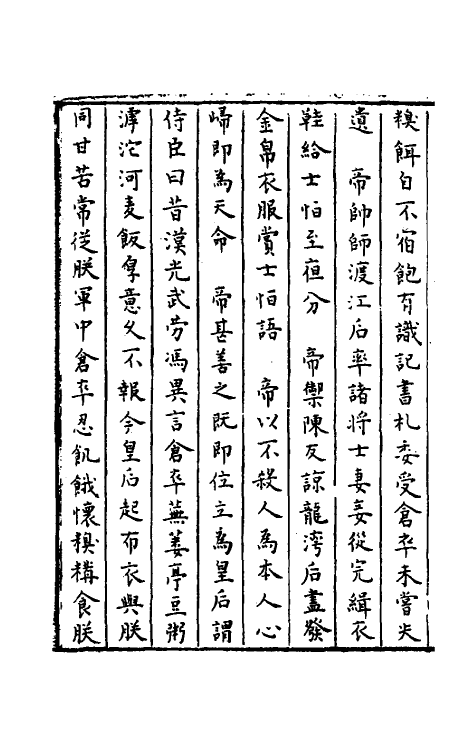 糗餌自不宿飽有識記書札委受倉卒未嘗失
遺　帝帥師渡江后率諸將士妻妾從完緝衣
鞋給士怕至夜分　帝禦陳友諒龍灣后盡發
金帛衣服賞士怕語　帝以不殺人為本人心
歸即為天命　帝甚善之既即位立為皇后謂
侍臣曰昔漢光武勞馮異言倉卒蕪蔞亭豆粥
滹沱河麦飯厚意久不報今皇后起布衣與朕
同甘苦常從朕軍中倉卒忍飢餓懷糗糒食朕